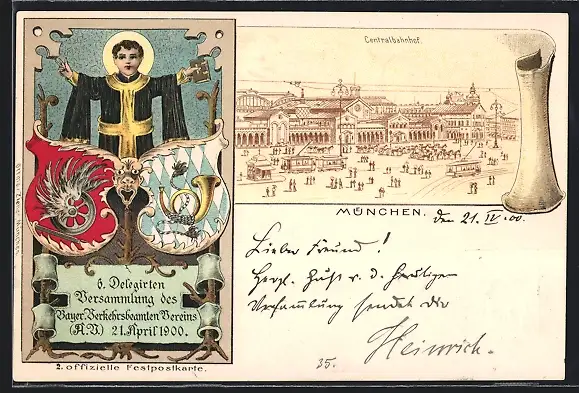 Centralbahnhof.
MÜNCHEN. den 21. IV. 00.
Lieber Freund!
Herzl. Gruß v. d. heutigen
Versammlung sendet Dir
Heinrich.
35.
6. Delegirten
Versammlung des
Bayer. Verkehrsbeamten Vereins
(A.V.) 21. April 1900.
2. offizielle Festpostkarte.